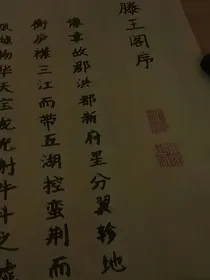 滕王阁序
豫章故郡洪都新府星分翼轸地
衡庐襟三江而带五湖控蛮荆而
越物华天宝龙光射牛斗之墟